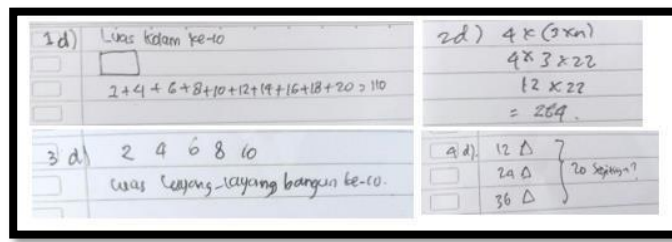 1d) Luas kolam ke-10
2+4+6+8+10+12+14+16+18+20 = 110
2d) 4 x (3xn)
4x3x22
12 x 22
= 264.
3 d) 2 4 6 8 10
Luas layang-layang bangun ke-10.
4 d). 12 Δ
24 Δ
36 Δ
20